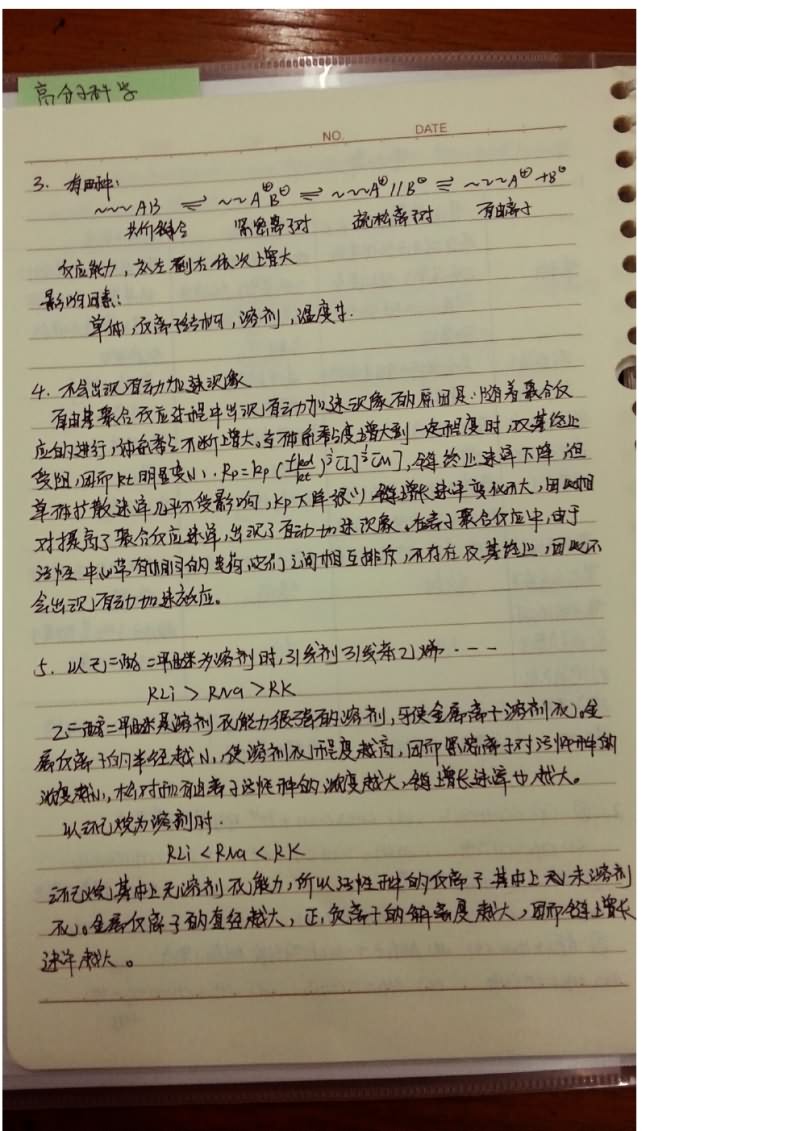 高分子科学
NO. DATE
3. 有四种:
~~~AB ⇌ ~~A⊕B⊖ ⇌ ~~~A⊕//B⊖ ⇌ ~~~A⊕+B⊖
共价键合 紧密离子对 疏松离子对 自由离子
反应能力,从左到右依次增大
影响因素:
单体,反离子结构,溶剂,温度等.
4. 不会出现自动加速现象
自由基聚合反应过程中出现自动加速现象的原因是:随着聚合反
应的进行,体系粘度不断增大。当体系粘度增大到一定程度时,双基终止
受阻,因而kt明显变小. Rp=kp(fkd/kt)^½[I]^½[M],链终止速率下降,但
单体扩散速率几乎不受影响,kp下降很小,链增长速率变化不大,因此相
对提高了聚合反应速率,出现了自动加速现象。在离子聚合反应中,由于
活性中心带有相同的电荷,它们之间相互排斥,不存在双基终止,因此不
会出现自动加速效应。
5. 以乙二醇二甲醚为溶剂时,引发剂引发苯乙烯---
RLi > RNa > RK
乙二醇二甲醚是溶剂化能力很强的溶剂,能使金属离子溶剂化。金
属反离子的半径越小,使溶剂化程度越高,因而紧密离子对活性种的
浓度越小,相对而言自由离子活性种的浓度越大,链增长速率也越大。
以环己烷为溶剂时.
RLi < RNa < RK
环己烷基本上无溶剂化能力,所以活性种的反离子基本上未溶剂
化。金属反离子的直径越大,正,负离子的解离度越大,因而链增长
速率越大。